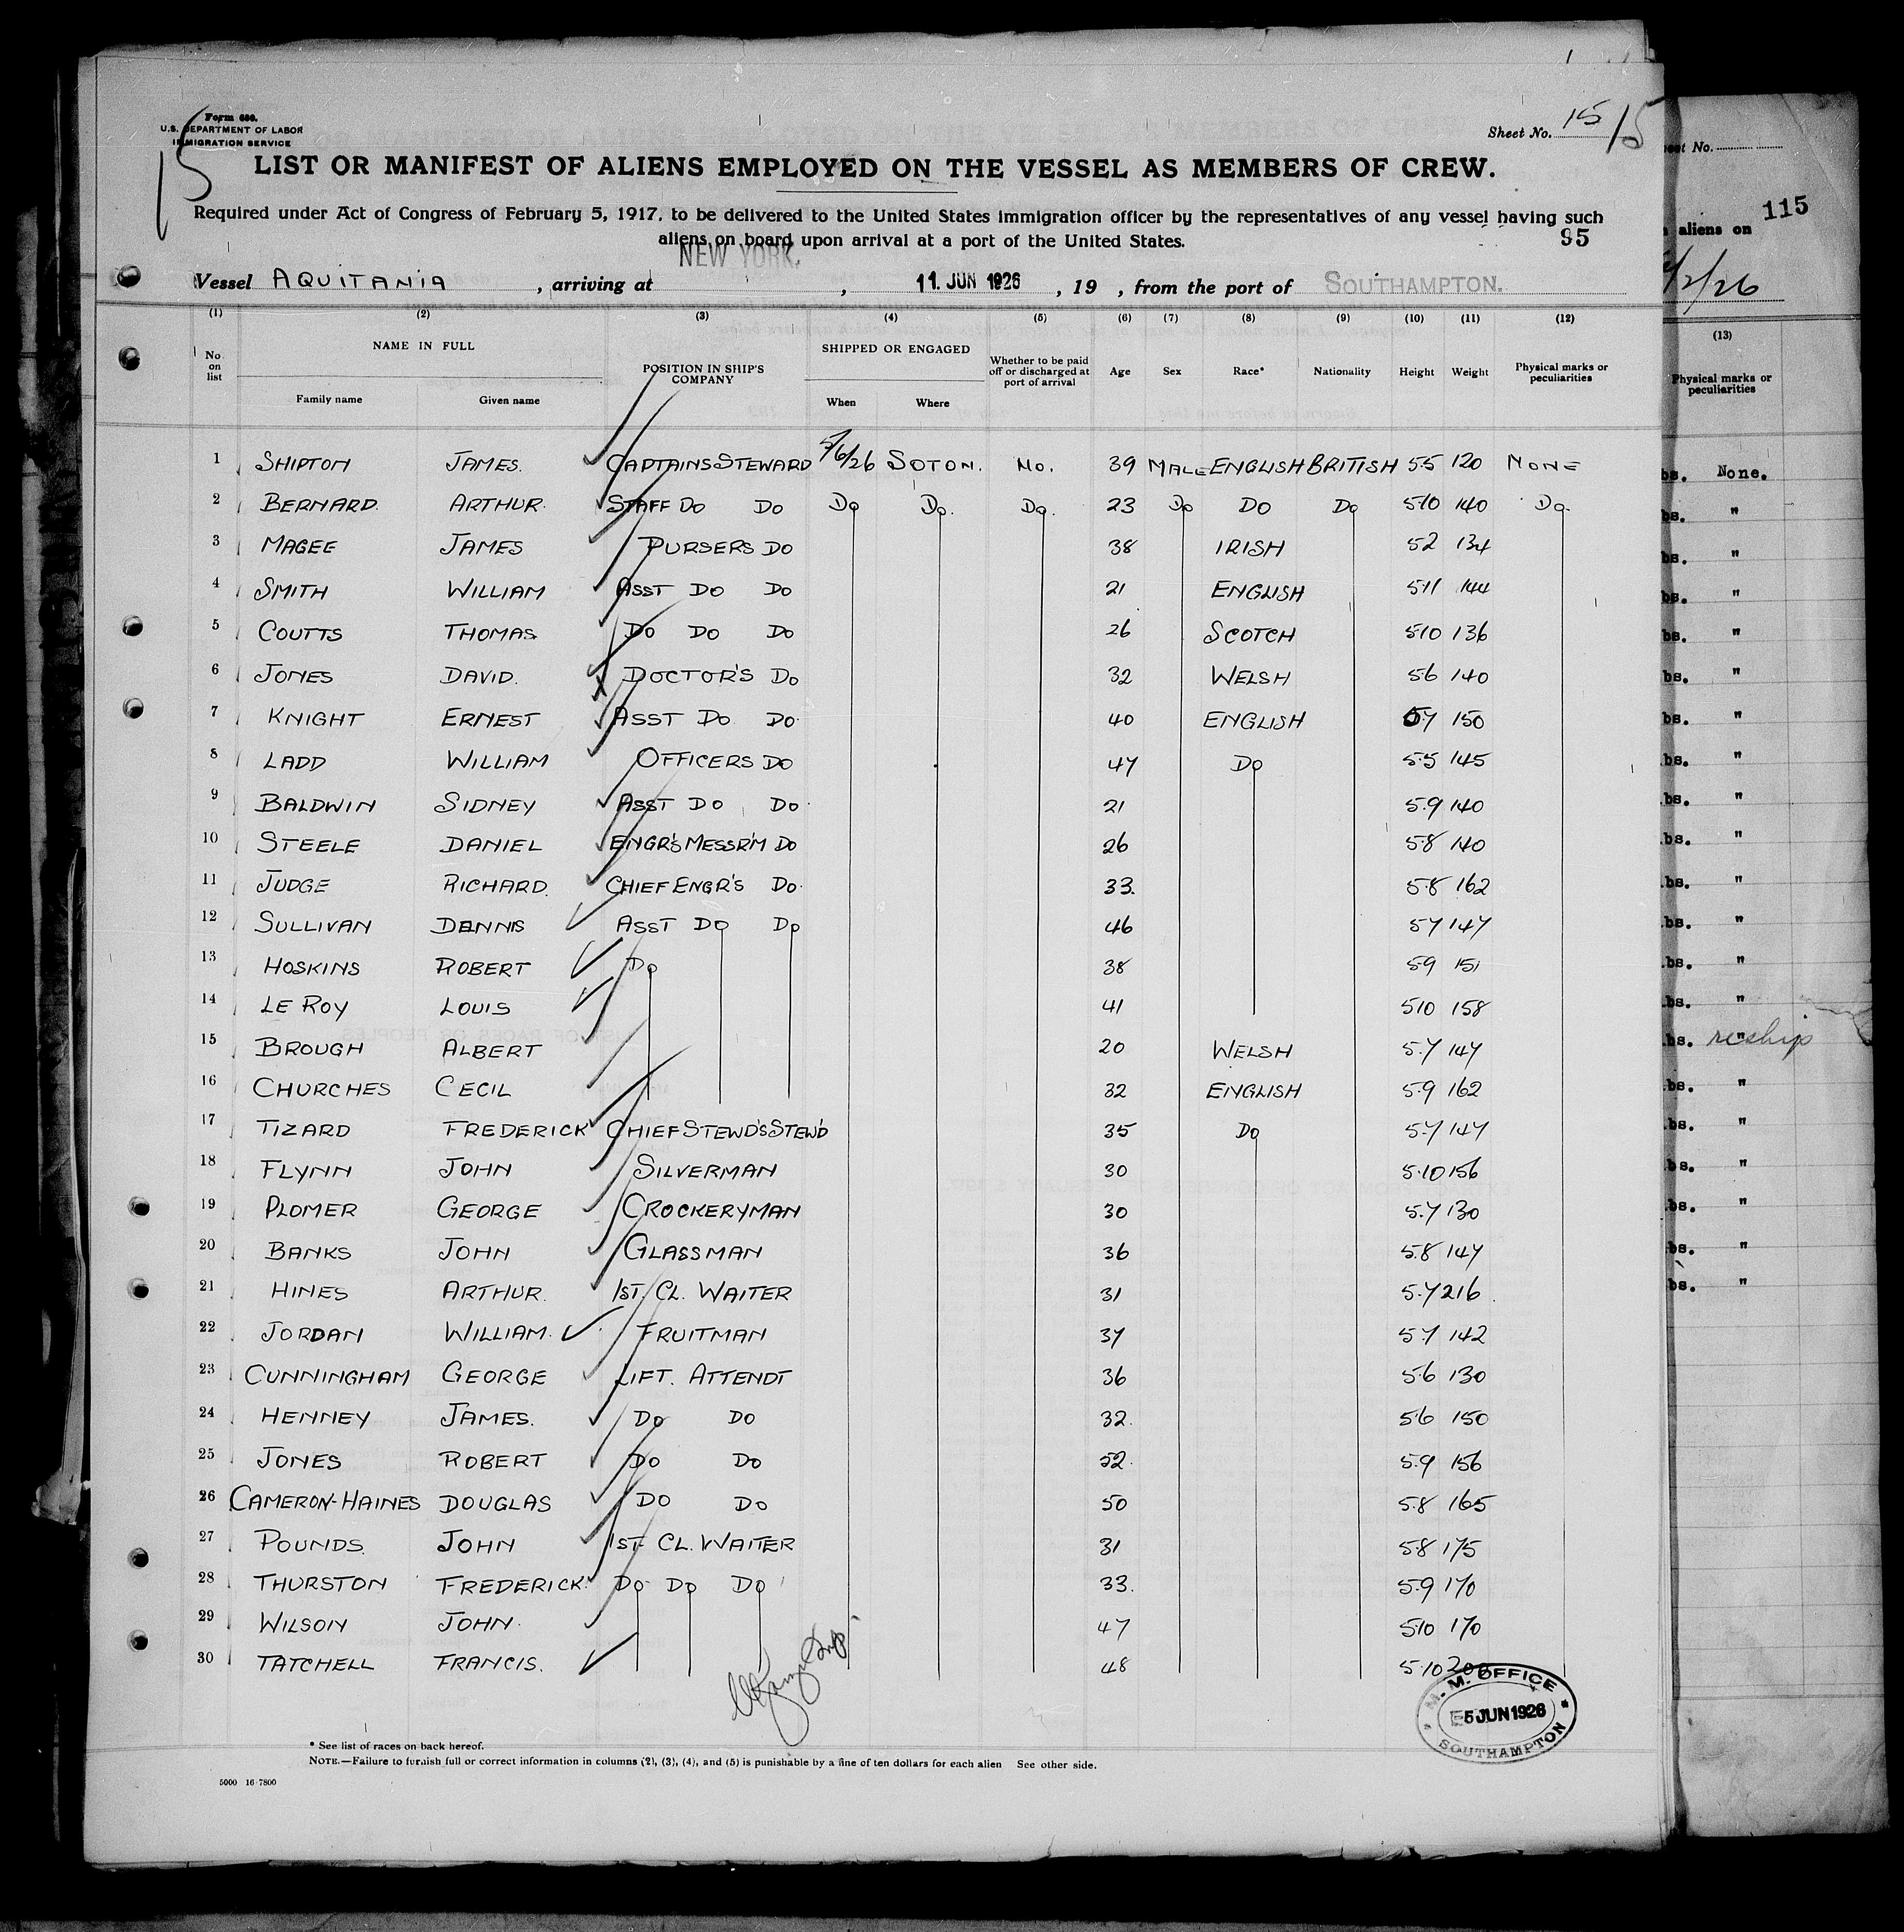 Form 680.
U.S. DEPARTMENT OF LABOR
IMMIGRATION SERVICE
15
Sheet No. 15 15
LIST OR MANIFEST OF ALIENS EMPLOYED ON THE VESSEL AS MEMBERS OF CREW.
Required under Act of Congress of February 5, 1917, to be delivered to the United States immigration officer by the representatives of any vessel having such
aliens on board upon arrival at a port of the United States. 95
Vessel AQUITANIA, arriving at NEW YORK, 11. JUN 1926, 19 , from the port of SOUTHAMPTON.
(1) (2) (3) (4) (5) (6) (7) (8) (9) (10) (11) (12)
No on list NAME IN FULL Family name Given name POSITION IN SHIP'S COMPANY SHIPPED OR ENGAGED When Where Whether to be paid off or discharged at port of arrival Age Sex Race* Nationality Height Weight Physical marks or peculiarities
1 SHIPTON JAMES. CAPTAINS STEWARD 5/6/26 SOTON. NO. 39 MALE ENGLISH BRITISH 5.5 120 NONE
2 BERNARD. ARTHUR. STAFF DO DO DO DO. DO. 23 DO DO DO 5.10 140 DO.
3 MAGEE JAMES PURSERS DO 38 IRISH 5.2 134
4 SMITH WILLIAM ASST DO DO 21 ENGLISH 5.11 144
5 COUTTS THOMAS DO DO DO 26 SCOTCH 5.10 136
6 JONES DAVID. DOCTOR'S DO 32 WELSH 5.6 140
7 KNIGHT ERNEST ASST DO DO. 40 ENGLISH 5.7 150
8 LADD WILLIAM OFFICERS DO 47 DO 5.5 145
9 BALDWIN SIDNEY ASST DO DO. 21 5.9 140
10 STEELE DANIEL ENGR'S MESSR'M DO 26 5.8 140
11 JUDGE RICHARD. CHIEF ENGR'S DO. 33. 5.8 162
12 SULLIVAN DENNIS ASST DO DO 46 5.7 147
13 HOSKINS ROBERT DO 38 5.9 151
14 LE ROY LOUIS 41 5.10 158
15 BROUGH ALBERT 20 WELSH 5.7 147
16 CHURCHES CECIL 32 ENGLISH 5.9 162
17 TIZARD FREDERICK CHIEF STEWD'S STEW'D 35 DO 5.7 147
18 FLYNN JOHN SILVERMAN 30 5.10 156
19 PLOMER GEORGE CROCKERYMAN 30 5.7 130
20 BANKS JOHN GLASSMAN 36 5.8 147
21 HINES ARTHUR. 1ST. CL. WAITER 31 5.7 216
22 JORDAN WILLIAM. FRUITMAN 37 5.7 142
23 CUNNINGHAM GEORGE LIFT. ATTENDT 36 5.6 130
24 HENNEY JAMES. DO DO 32. 5.6 150
25 JONES ROBERT DO DO 52. 5.9 156
26 CAMERON-HAINES DOUGLAS DO DO 50 5.8 165
27 POUNDS JOHN 1ST CL. WAITER 31 5.8 175
28 THURSTON FREDERICK. DO DO DO 33. 5.9 170
29 WILSON JOHN. 47 5.10 170
30 TATCHELL FRANCIS. 48 5.10 200
M. M. OFFICE
5 JUN 1926
SOUTHAMPTON
* See list of races on back hereof.
NOTE.—Failure to furnish full or correct information in columns (2), (3), (4), and (5) is punishable by a fine of ten dollars for each alien See other side.
5000 16-7800
Sheet No.
115
aliens on
/2/26
(13)
Physical marks or peculiarities
bs. None.
bs. "
bs. "
bs. "
bs. "
bs. "
bs. "
bs. "
bs. "
bs. "
bs. "
bs. "
bs. "
bs. "
bs. " reship
bs. "
bs. "
bs. "
bs. "
bs. "
bs. "